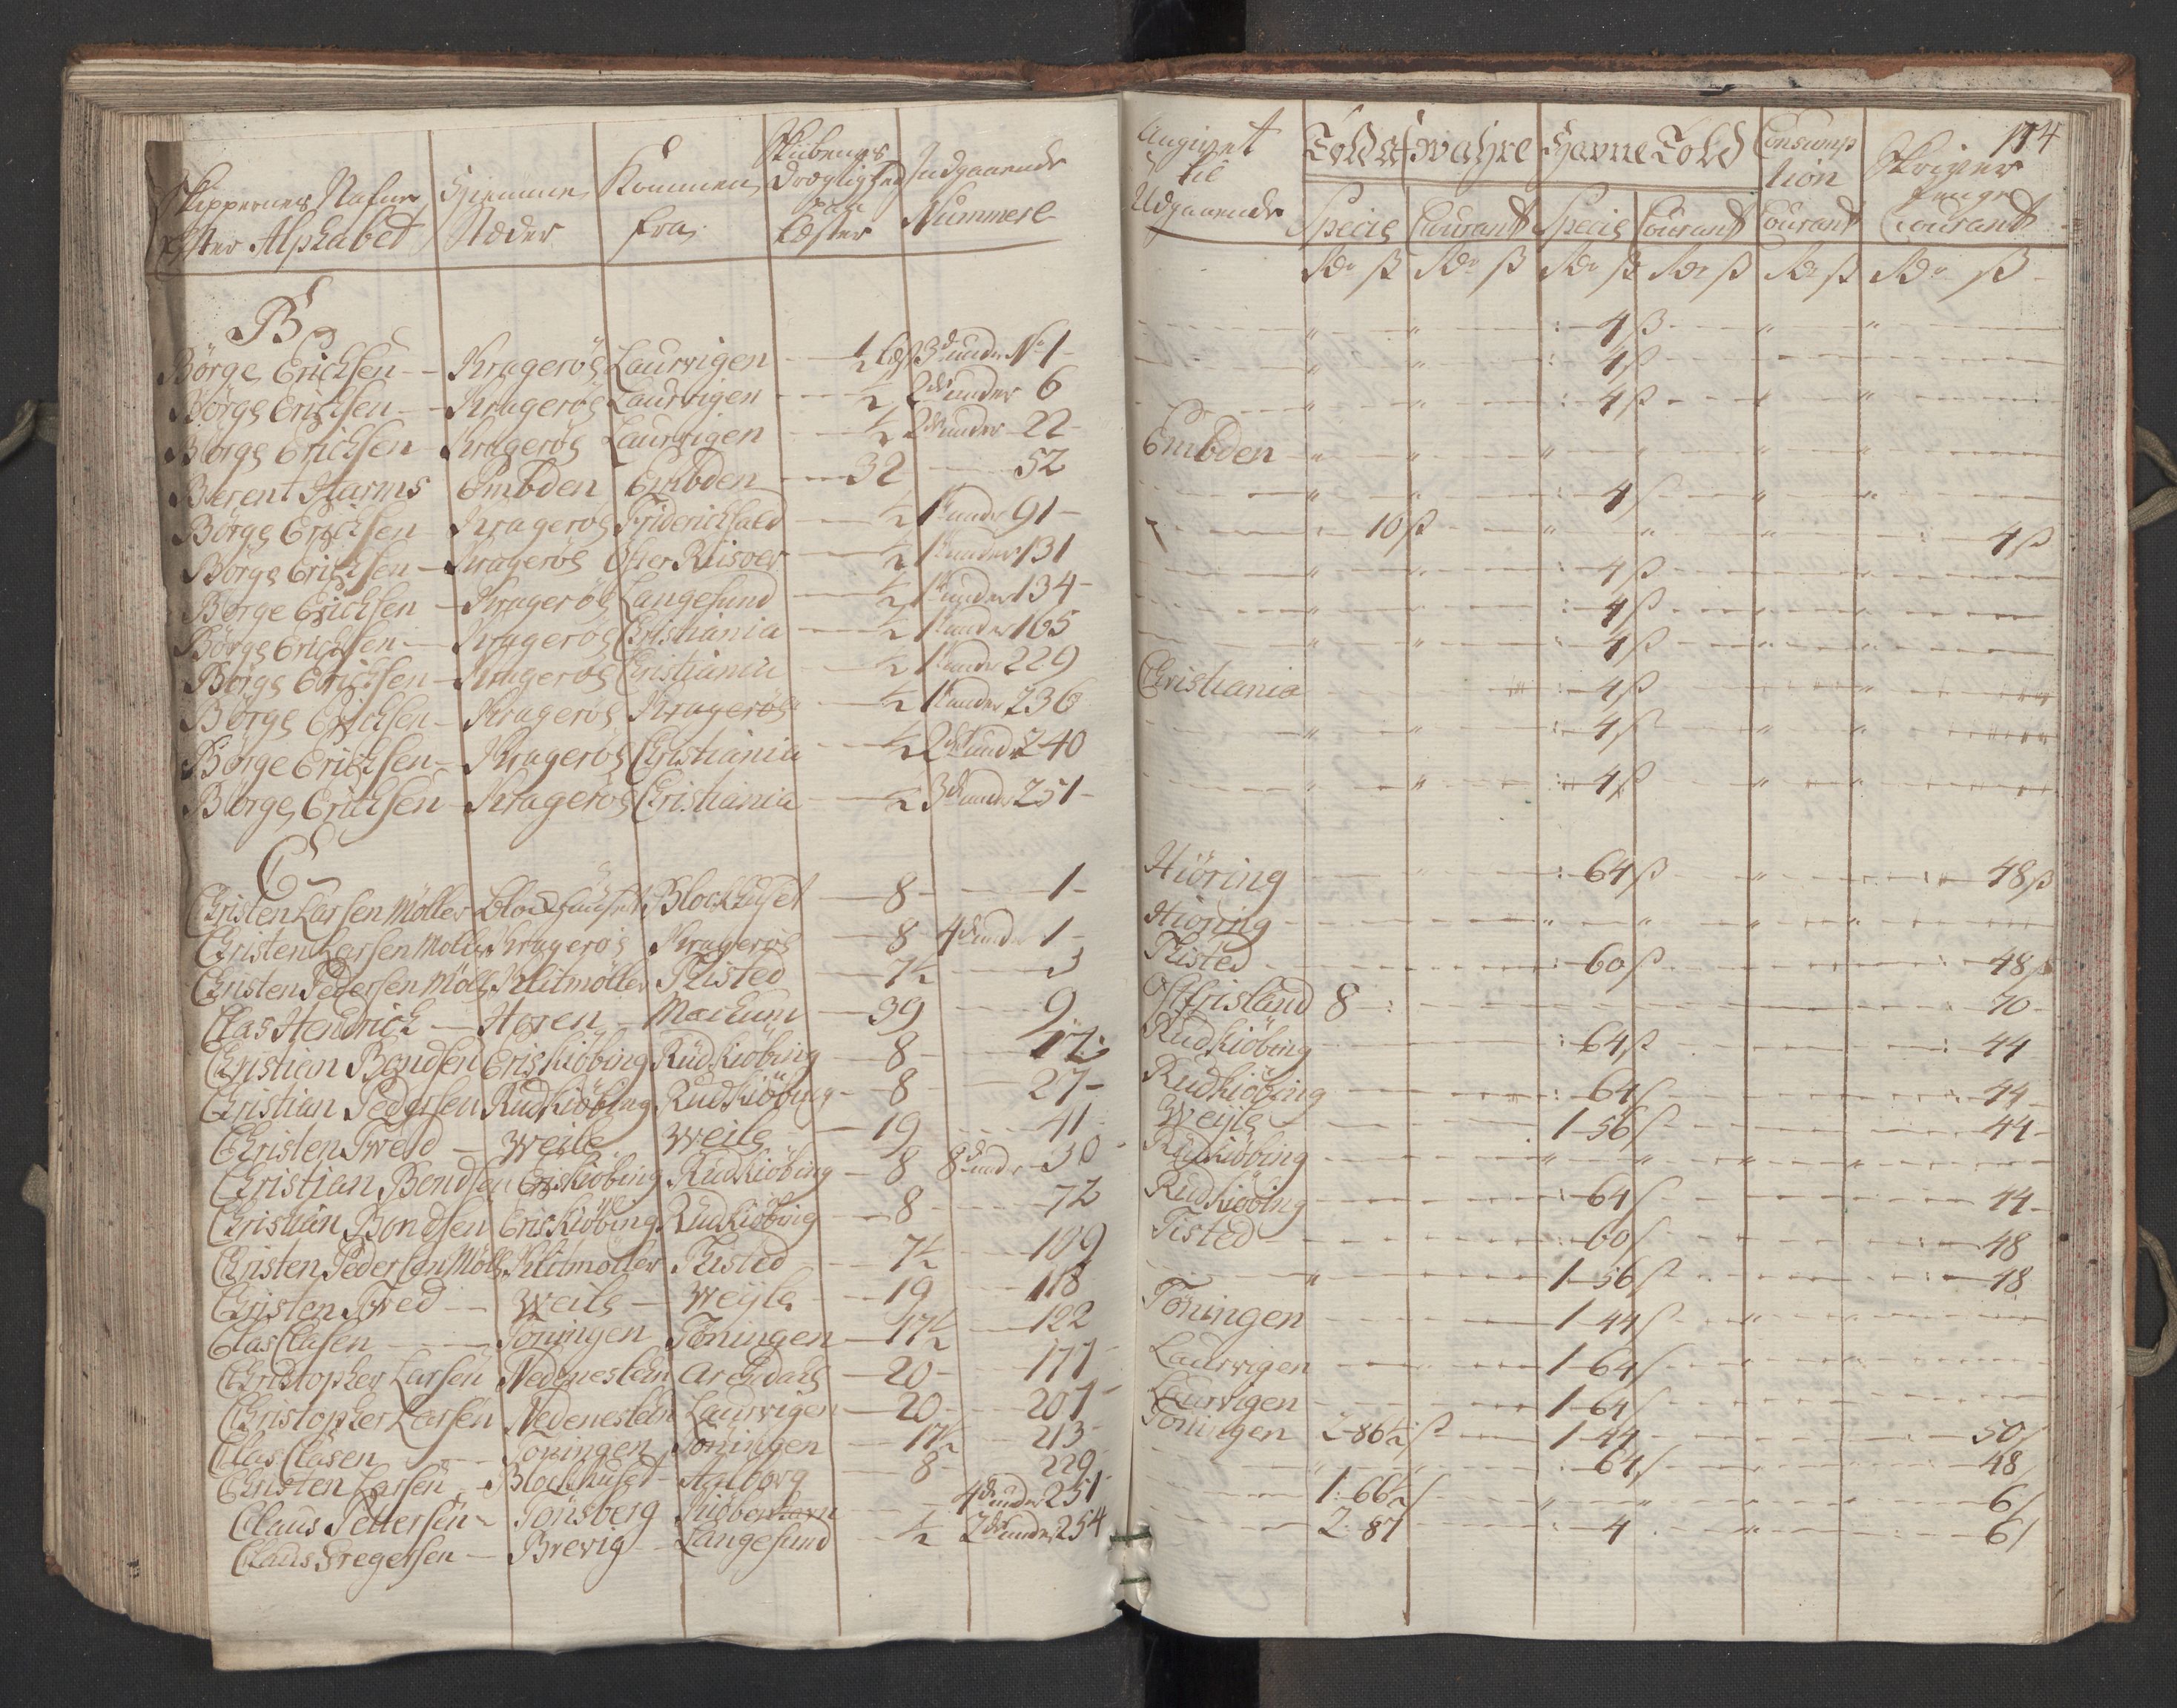 Skippernes Nafne efter Alphabet | Hiemme Stæder | Kommen fra | Skibenes Drægtighed paa Læster | Indgaaende Nummere
B
Börge Erichsen — Krageröe Laurvigen — ½ læst 3de under No 1
Börge Erichsen — Krageröe Laurvigen — ½ 2de under 6
Börge Erichsen Krageröe Laurvigen — ½ 2de under 22
Berent Harms Embden Embden — 32 — 52
Börge Erichsen Krageröe Friderichald — ½ 1te under 91
Börge Erichsen — Krageröe Öster Riisoer — ½ 1te under 131
Börge Erichsen — Krageröe Langesund — ½ 1te under 134
Börge Erichsen — Krageröe Christiania — ½ 1te under 165
Börge Erichsen — Krageröe Christiania — ½ 1te under 229
Börge Erichsen — Krageröe Krageröe — ½ 1te under 236
Börge Erichsen — Krageröe Christiania — ½ 2de under 240
Börge Erichsen — Krageröe Christiania — ½ 3de under 251
C
Christen Larsen Möller Blockhuuset Blockhuset — 8 — 1
Christen Larsen Möller Krageröe Krageröe — 8 4de under 1
Christen Pedersen Möll. Klitmöller Thisted — 7½ — 3
Clas Hendrich — Horen — Mackum — 39 — 9
Christian Bendsen Eriskiöbing Rudkiöbing — 8 — 17
Christian Pedersen Rudkiöbing Rudkiöbing — 8 — 27
Christen Tweed — Weile Weile — 19 — 41
Christian Bendsen Eriskiöbing Rudkiöbing — 8 8de under 30
Christian Bondsen Eriskiöbing Rudkiöbing — 8 — 72
Christen Pedersen Möll. Klitmöller Thisted — 7½ — 109
Christen Twed — Weile — Weyle — 19 — 118
Clas Clasen — Töningen Töningen — 17½ — 122
Christopher Larsen Nedeneslehn Arendahl — 20 — 177
Christopher Larsen Nedeneslehn Laurvigen — 20 — 207
Clas Clasen — Töningen Töningen — 17½ — 213
Christen Larsen — Blockhuset — Aalborg — 8 — 229
Claus Pettersen — Tönsberg Kiöbenhavn — 4de under 251
Claus Gregersen — Brevig — Langesund — ½ 2de under 254
114
Angivet til Udgaaende | Told af wahre | Havne Told | Consumption | Skriver Penge
Specie | Courant | Specie | Courant | Courant | Courant
Rdr ß | Rdr ß | Rdr ß | Rdr ß | Rdr ß | Rdr ß
4 ß
4 ß
4 ß
Embden
4 ß
10 ß — 4 ß
4 ß
4 ß
4 ß
Christiania — 4 ß
4 ß
4 ß
Hiöring — 64 ß — 48 ß
Hiöring
Thisted — 60 ß — 48 ß
Ostfrisland 8 — 70
Rudkiöbing — 64 ß — 44
Rudkiöbing — 64 ß — 44
Weyle — 1 56 ß — 44
Rudkiöbing
Rudkiöbing — 64 ß — 44
Tisted — 60 ß — 48
1 56 ß — 48
Töningen — 1 44 ß
Laurvigen — 1 64 ß
Laurvigen — 1 64 ß
Töningen 2 86½ ß — 1 44 — 50 ß
64 ß — 48
1 66½ ß — 6 ß
2 87 — 4 — 6 ß